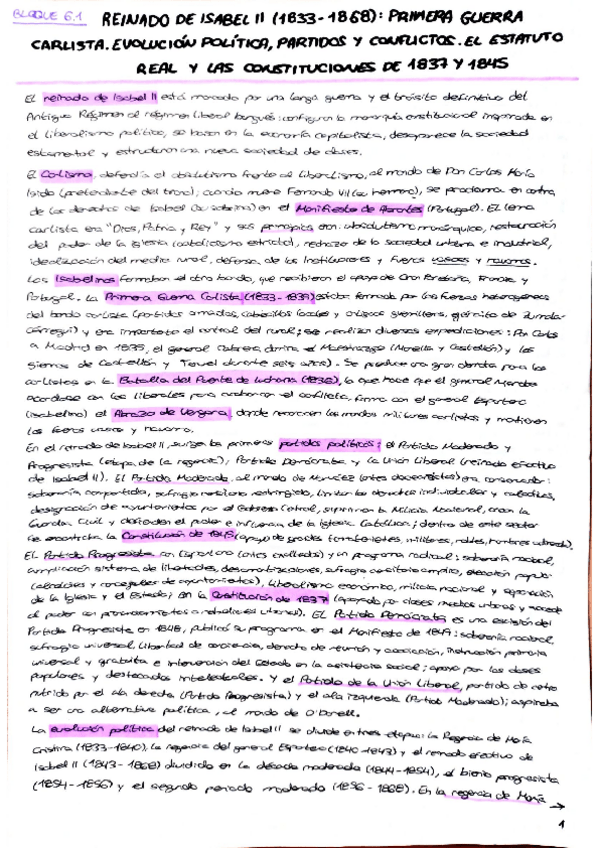 BLOQUE 6.1 REINADO DE ISABEL II (1833-1868): PRIMERA GUERRA
CARLISTA. EVOLUCIÓN POLÍTICA, PARTIDOS Y CONFLICTOS. EL ESTATUTO
REAL Y LAS CONSTITUCIONES DE 1837 Y 1845
El reinado de Isabel II está marcado por una larga guerra y el tránsito definitivo del
Antiguo Régimen al régimen liberal burgués: configuran la monarquía constitucional inspirada en
el liberalismo político, se basan en la economía capitalista, desaparece la sociedad
estamental y estructuran una nueva sociedad de clases.
El Carlismo, defendía el absolutismo frente al Liberalismo, al mando de Don Carlos María
Isidro (pretendiente del trono); cuando muere Fernando VII (su hermano), se proclama en contra
de los derechos de Isabel (su sobrina) en el Manifiesto de Abrantes (Portugal). El lema
Carlista era "Dios, Patria y Rey" y sus principios eran: absolutismo monárquico, restauración
del poder de la Iglesia (catolicismo estricto), rechazo de la sociedad urbana e industrial,
idealización del medio rural, defensa de las Instituciones y fueros vascos y navarros.
Los Isabelinos formaban el otro bando, que recibieron el apoyo de Gran Bretaña, Francia y
Portugal. La Primera Guerra Carlista (1833-1839) estaba formada por las fuerzas heterogéneas
del bando carlista (partidas armadas, cabecillas locales y antiguos guerrilleros, ejército de Zumala-
cárregui) y era importante el control del rural; se realizan diversas expediciones: Don Carlos
a Madrid en 1835, el general Cabrera domina el Maestrazgo (Morella y Castellón) y las
sierras de Castellón y Teruel durante seis años). Se produce una gran derrota para los
carlistas en la Batalla del Puente de Luchana (1836), lo que hace que el general Maroto
acordase con los liberales para acabar con el conflicto, firma con el general Espartero
(isabelino) el Abrazo de Vergara, donde reconocen los mandos militares carlistas y mantienen
los fueros vascos y navarros.
En el reinado de Isabel II, surgen los primeros partidos políticos; el Partido Moderado y
Progresista (etapa de la regencia); Partido Demócrata y la Unión Liberal (reinado efectivo
de Isabel II). El Partido Moderado, al mando de Narváez (antes doceañistas) era conservador:
soberanía compartida, sufragio censitario restringido, limitan los derechos individuales y colectivos,
designación de ayuntamientos por el Gobierno Central, suprimen la Milicia Nacional, crean la
Guardia Civil y defienden el poder e influencia de la Iglesia Católica; dentro de este sector
se encontraba la Constitución de 1845 (apoyo de grandes terratenientes, militares, nobles, hombres urbanos).
El Partido Progresista con Espartero (antes exaltados) y un programa radical: soberanía nacional,
ampliación sistema de libertades, desamortizaciones, sufragio censitario amplio, elección popular
(alcaldes y concejales de ayuntamientos), liberalismo económico, milicia nacional y separación
de la Iglesia y el Estado; en la Constitución de 1837 (apoyada por clases medias urbanas y accede
al poder con pronunciamientos o rebeliones urbanas). El Partido Demócrata es una escisión del
Partido Progresista en 1848, publicó su programa en el Manifiesto de 1849: soberanía nacional,
sufragio universal, libertad de conciencia, derecho de reunión y asociación, instrucción primaria
universal y gratuita e intervención del Estado en la asistencia social; apoyo por las clases
populares y destacados intelectuales. Y el Partido de la Unión Liberal, partido de centro
nutrido por el ala derecha (Partido Progresista) y el ala izquierda (Partido Moderado); aspiraba
a ser una alternativa política, al mando de O'Donell.
La evolución política del reinado de Isabel II se divide en tres etapas: La Regencia de María
Cristina (1833-1840), la regencia del general Espartero (1840-1843) y el reinado efectivo de
Isabel II (1843-1868) dividido en la década moderada (1844-1854), el bienio progresista
(1854-1856) y el segundo periodo moderado (1856-1868). En la regencia de María →
1